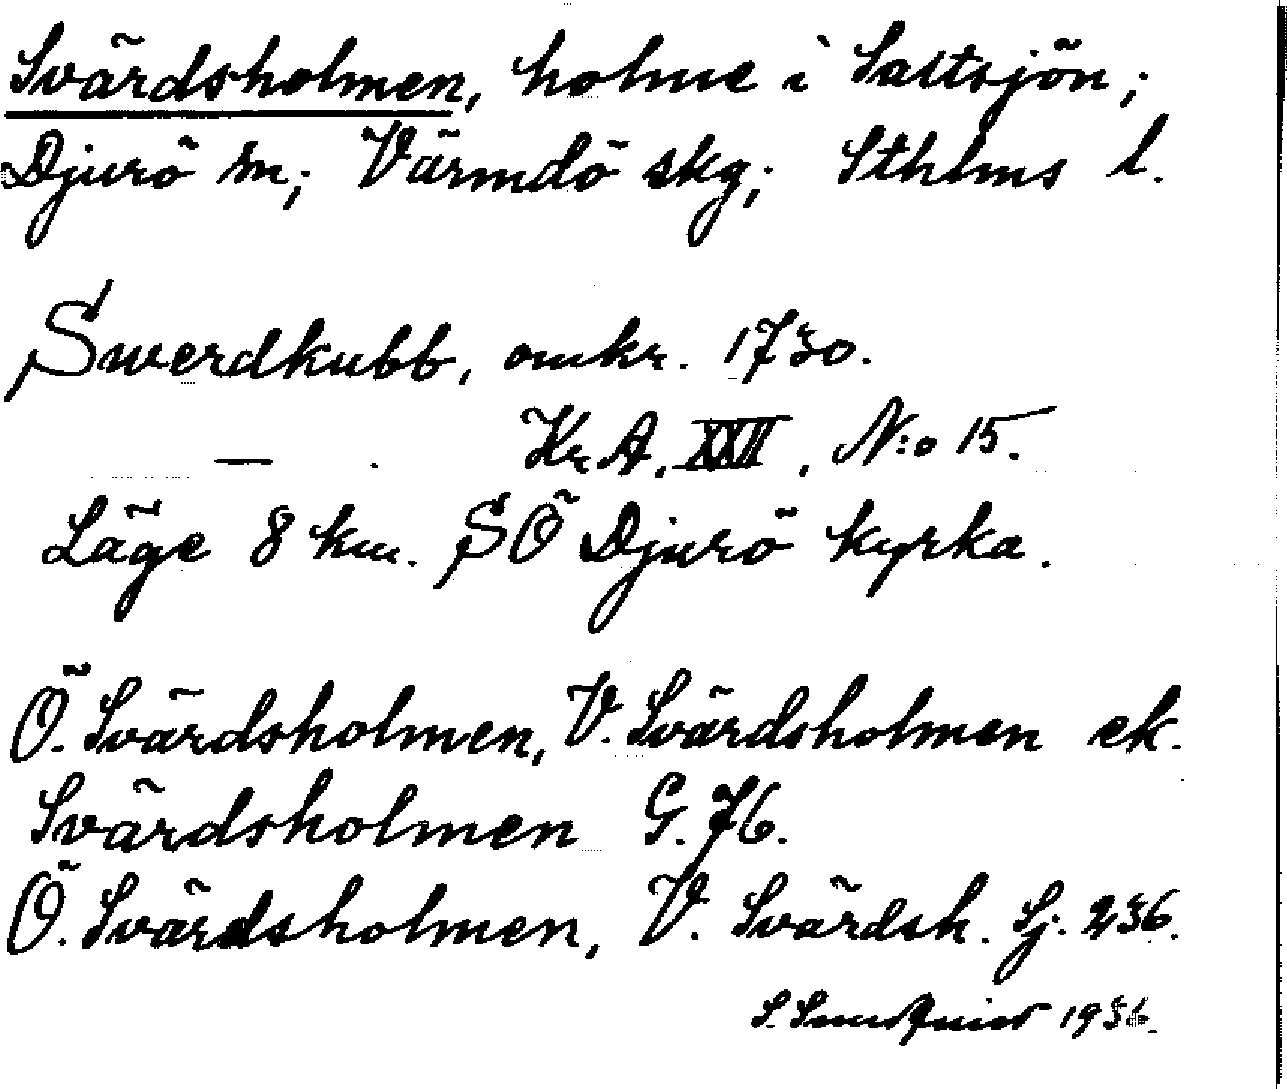 Svärdsholmen, holme i Saltsjön;
Djurö sn; Värmdö skg; Sthlms l.
Swerdkubb, omkr. 1730.
— . Kr A. XXII, N:o 15.
Läge 8 km. SÖ Djurö kyrka.
Ö. Svärdsholmen, V. Svärdsholmen ek.
Svärdsholmen G. 76.
Ö. Svärdsholmen, V. Svärdsh. Sj. 236.
S. 1936.